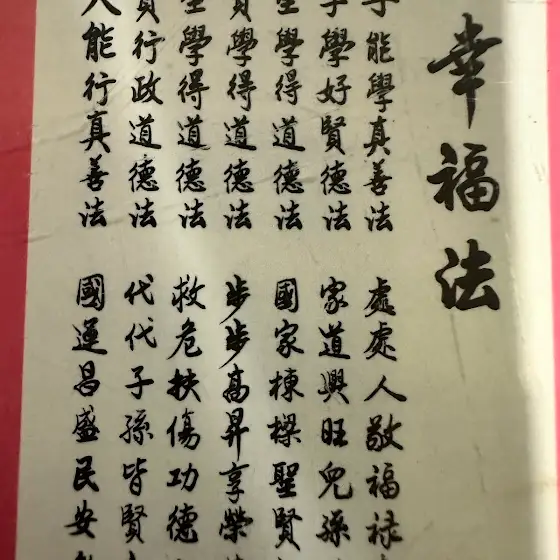 幸福法
能學真善法
學好賢德法
學得道德法
學得道德法
學得道德法
行政道德法
能行真善法
處處人敬福祿
家道興旺兒孫
國家棟樑聖賢
步步高昇享榮
救危扶傷功德
代代子孫皆賢
國運昌盛民安